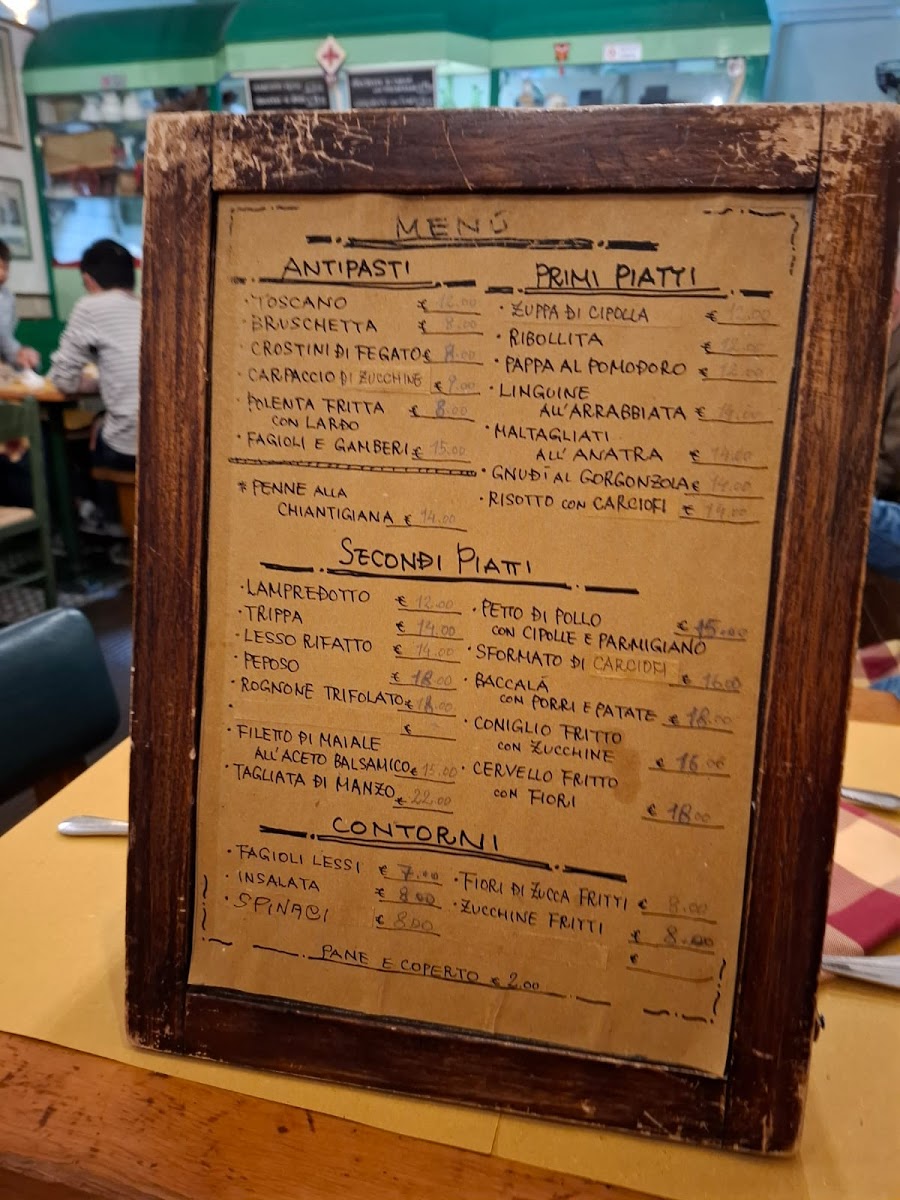 MENÚ
ANTIPASTI
· TOSCANO € 12.00
· BRUSCHETTA € 8.00
· CROSTINI DI FEGATO € 8.00
· CARPACCIO DI ZUCCHINE € 9.00
· POLENTA FRITTA € 8.00
CON LARDO
· FAGIOLI E GAMBERI € 15.00
* PENNE ALLA
CHIANTIGIANA € 14.00
PRIMI PIATTI
· ZUPPA DI CIPOLLA € 12.00
· RIBOLLITA € 12.00
· PAPPA AL POMODORO € 12.00
· LINGUINE
ALL'ARRABBIATA € 14.00
· MALTAGLIATI
ALL'ANATRA € 14.00
· GNUDI AL GORGONZOLA € 14.00
· RISOTTO CON CARCIOFI € 14.00
SECONDI PIATTI
· LAMPREDOTTO € 12.00
· TRIPPA € 14.00
· LESSO RIFATTO € 14.00
· PEPOSO € 18.00
· ROGNONE TRIFOLATO € 18.00
· €
· FILETTO DI MAIALE
ALL'ACETO BALSAMICO € 15.00
· TAGLIATA DI MANZO € 22.00
· PETTO DI POLLO € 15.00
CON CIPOLLE E PARMIGIANO
· SFORMATO DI CARCIOFI € 16.00
· BACCALÁ
CON PORRI E PATATE € 18.00
· CONIGLIO FRITTO
CON ZUCCHINE € 16.00
· CERVELLO FRITTO
CON FIORI € 18.00
CONTORNI
· FAGIOLI LESSI € 7.00
· INSALATA € 8.00
· SPINACI € 8.00
· FIORI DI ZUCCA FRITTI € 8.00
· ZUCCHINE FRITTI € 8.00
€
PANE E COPERTO € 2.00